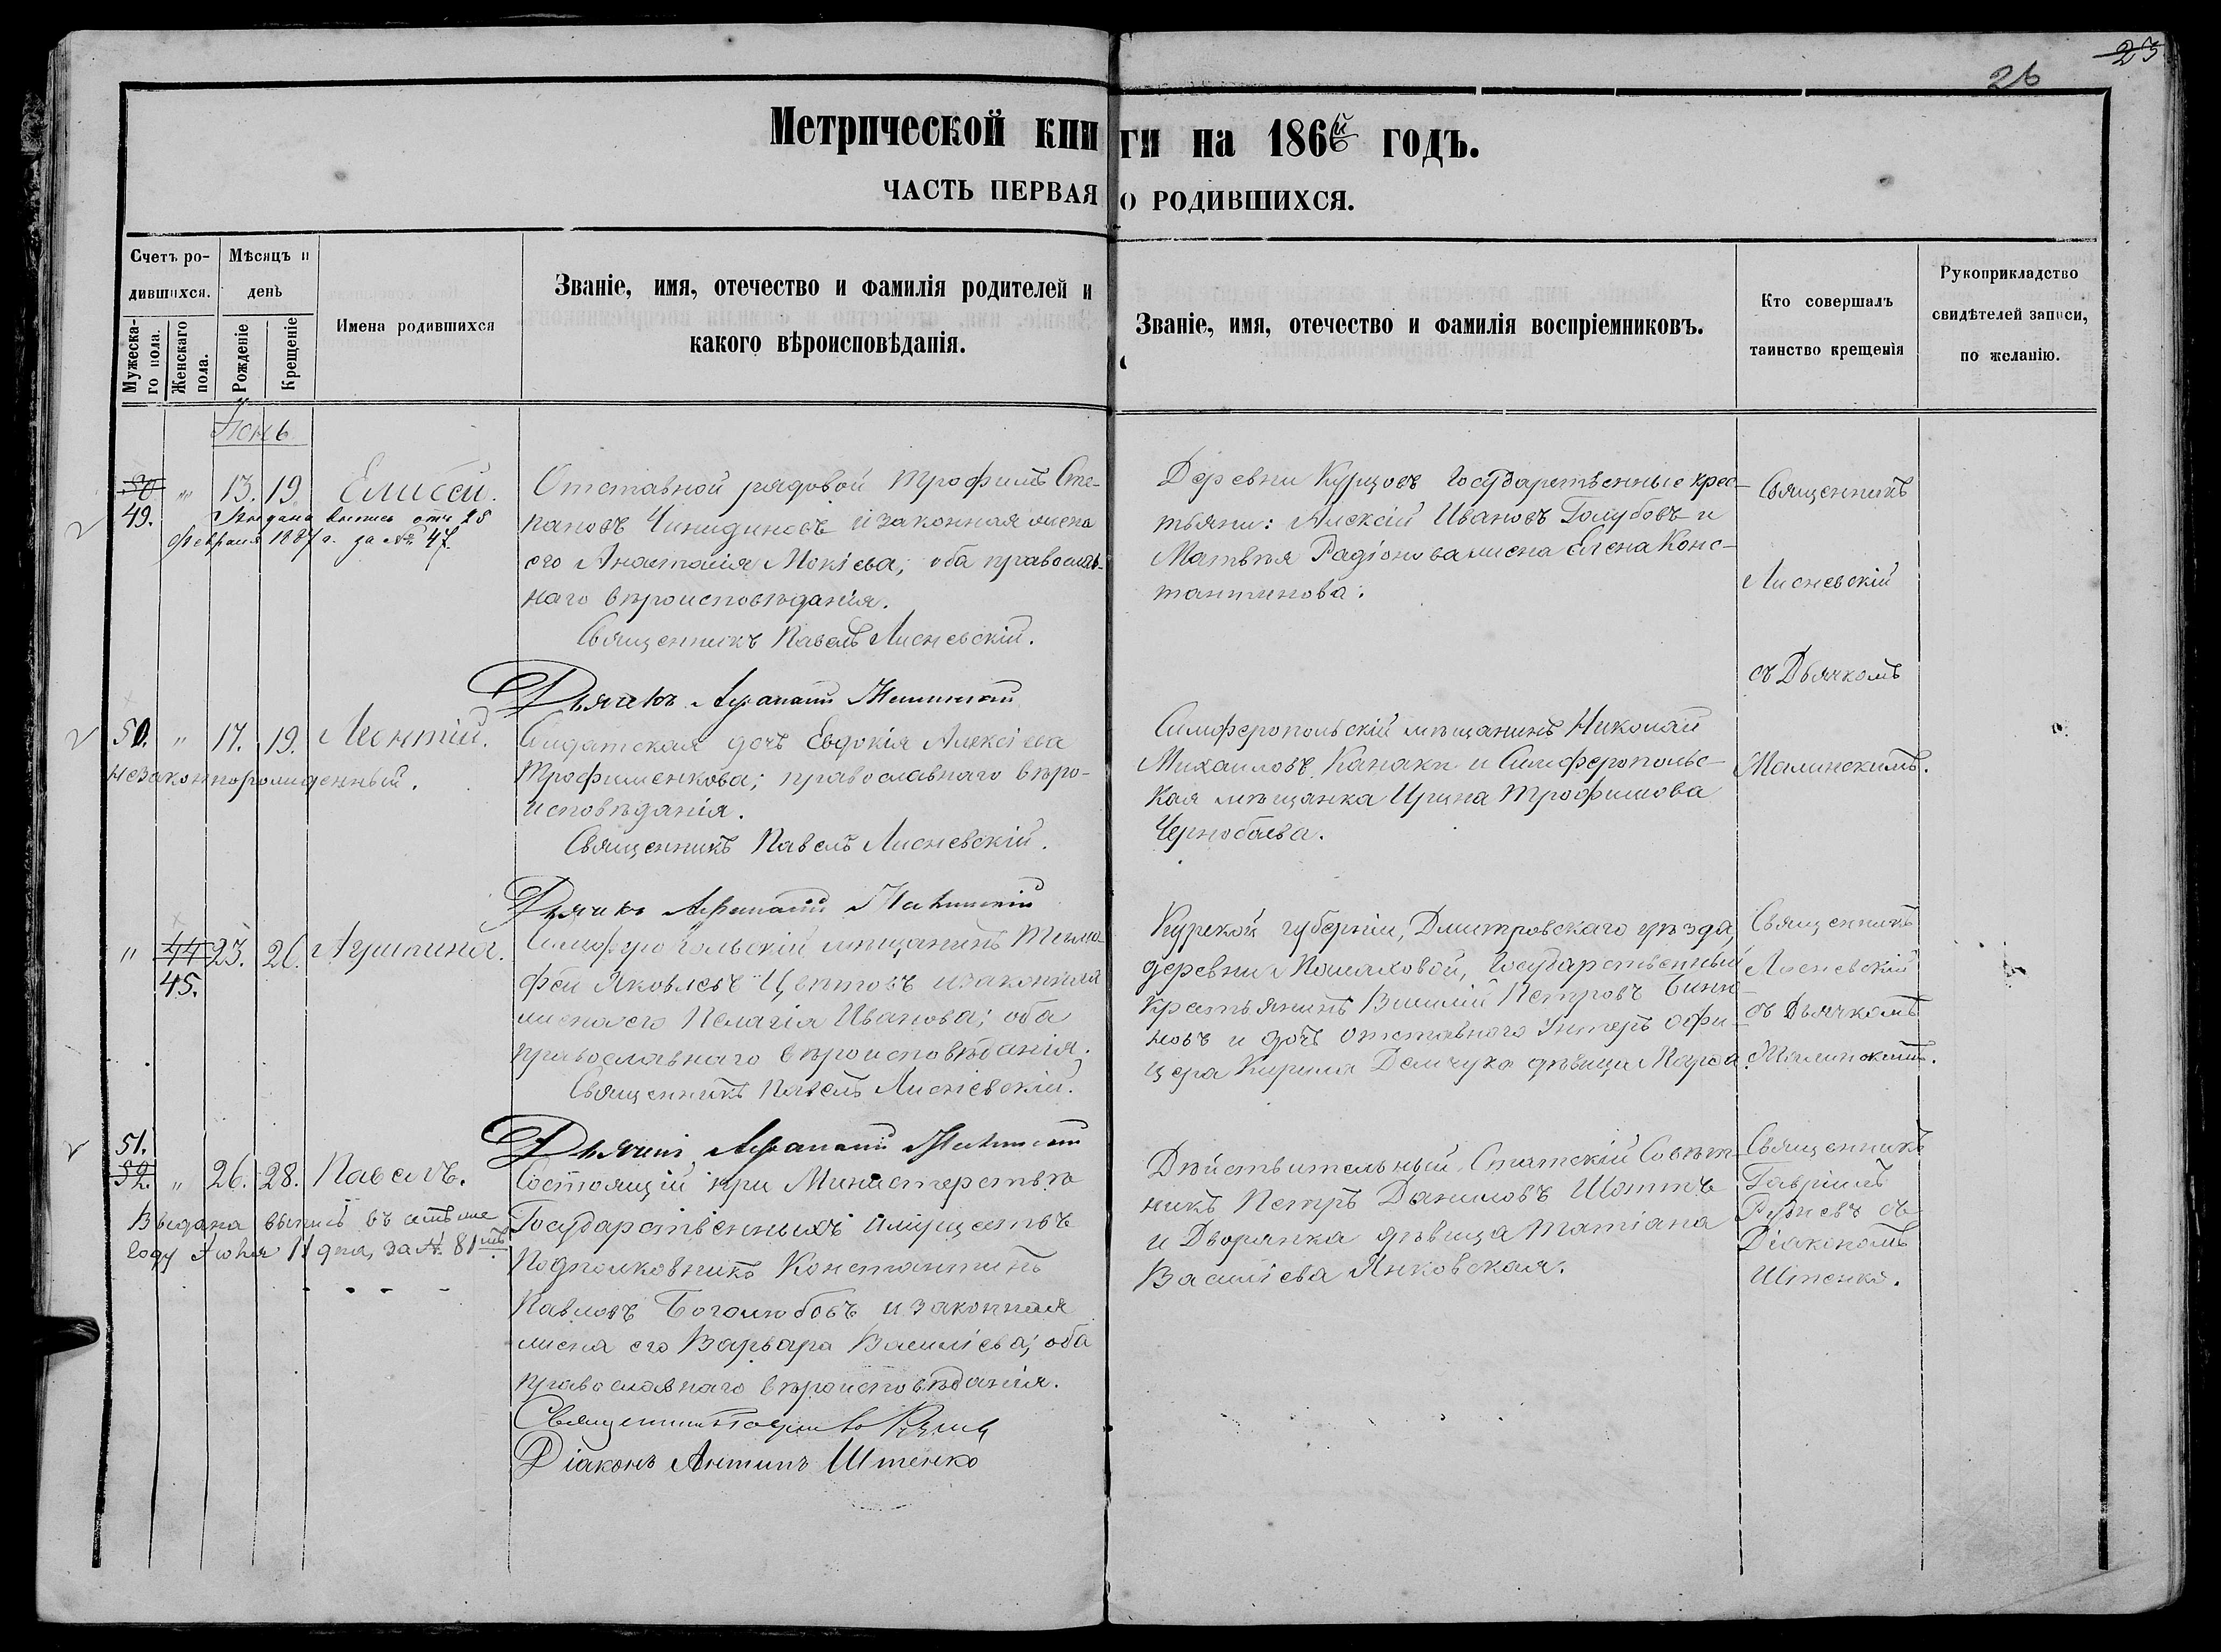 23
26
Метрической книги на 1866й годъ.
ЧАСТЬ ПЕРВАЯ О РОДИВШИХСЯ.
Счетъ родившихся.
Мужескаго пола.
Женскаго пола.
Мѣсяцъ и день
Рожденіе
Крещеніе
Имена родившихся
Званіе, имя, отечество и фамилія родителей и
какого вѣроисповѣданія.
Званіе, имя, отечество и фамилія воспріемниковъ.
Кто совершалъ
таинство крещенія
Рукоприкладство
свидѣтелей записи,
по желанію.
Іюнь
50 " 13. 19. Елисей.
49.
Выдана выпись отъ 25
февраля 1887 г. за № 47.
Отставной рядовой Трофимъ Сте-
пановъ и законная жена
его Анастасія Мокіева; оба православ-
наго вѣроисповѣданія.
Священникъ Павелъ Лисневскій.
Дьячекъ Малинскій
Деревни Курцовъ Государственные крес-
тьяни: Алексій Ивановъ Голубовъ и
Матвѣя Радіонова жена Елена Конс-
тантинова.
Священникъ
Лисневскій
съ Дьячкомъ
Малинскимъ.
50. " 17. 19. Леонтій.
незаконнорожденный.
Солдатская дочь Евдокія Алексіева
Трофименкова; православнаго вѣро-
исповѣданія.
Священникъ Павелъ Лисневскій.
Дьячекъ Малинскій
Симферопольскій мѣщанинъ Николай
Михаиловъ Канаки и Симферопольс-
кая мѣщанка Ирина Трофимова
Чернобаева.
" 44 23. 26. Агрипина.
45.
Симферопольскій мѣщанинъ Тимо-
фей Яковлевъ Цвѣтовъ и законная
жена его Пелагія Иванова; оба
православнаго вѣроисповѣданія.
Священникъ Павелъ Лисневскій.
Дьячекъ Малинскій
Курской губерніи, Дмитровскаго уѣзда,
деревни Государственный
Крестьянинъ Василій Петровъ
новъ и дочь отставного Унтеръ офи-
цера Кирила Демчука дѣвица Марфа.
Священникъ
Лисневскій
съ Дьячкомъ
Малинскимъ.
51.
52. " 26. 28. Павелъ.
Выдана выпись въ
году Іюня 11 дня, за №. 81мъ.
Состоящій при Министерствѣ
Государственныхъ имуществъ
Подполковникъ Константинъ
Павловъ Боголюбовъ и законная
жена его Варвара Василіева; оба
православнаго вѣроисповѣданія.
Священникъ Гавріилъ Рудневъ
Діаконъ Антипъ Штенко
Дѣйствительный Статскій Совѣт-
никъ Петръ Даниловъ Шоттъ
и Дворянка дѣвица Татіана
Василіева Янковская.
Священникъ
Гавріилъ
Рудневъ съ
Діакономъ
Штенко.